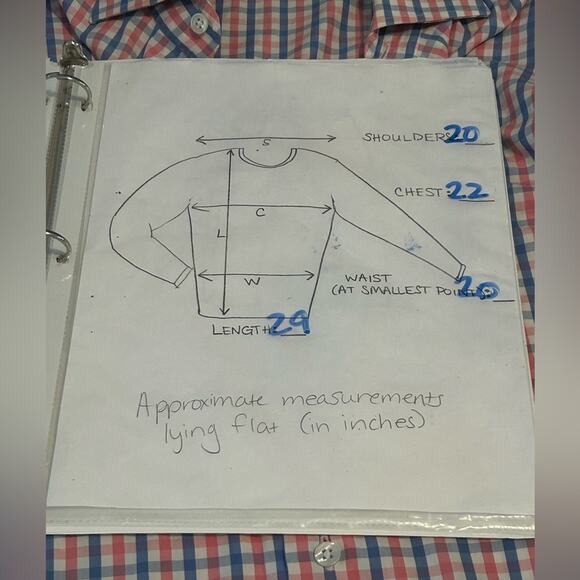 S
SHOULDERS: 20
CHEST: 22
C
L
W
WAIST
(AT SMALLEST POINT): 20
LENGTH: 29
Approximate measurements
lying flat (in inches)